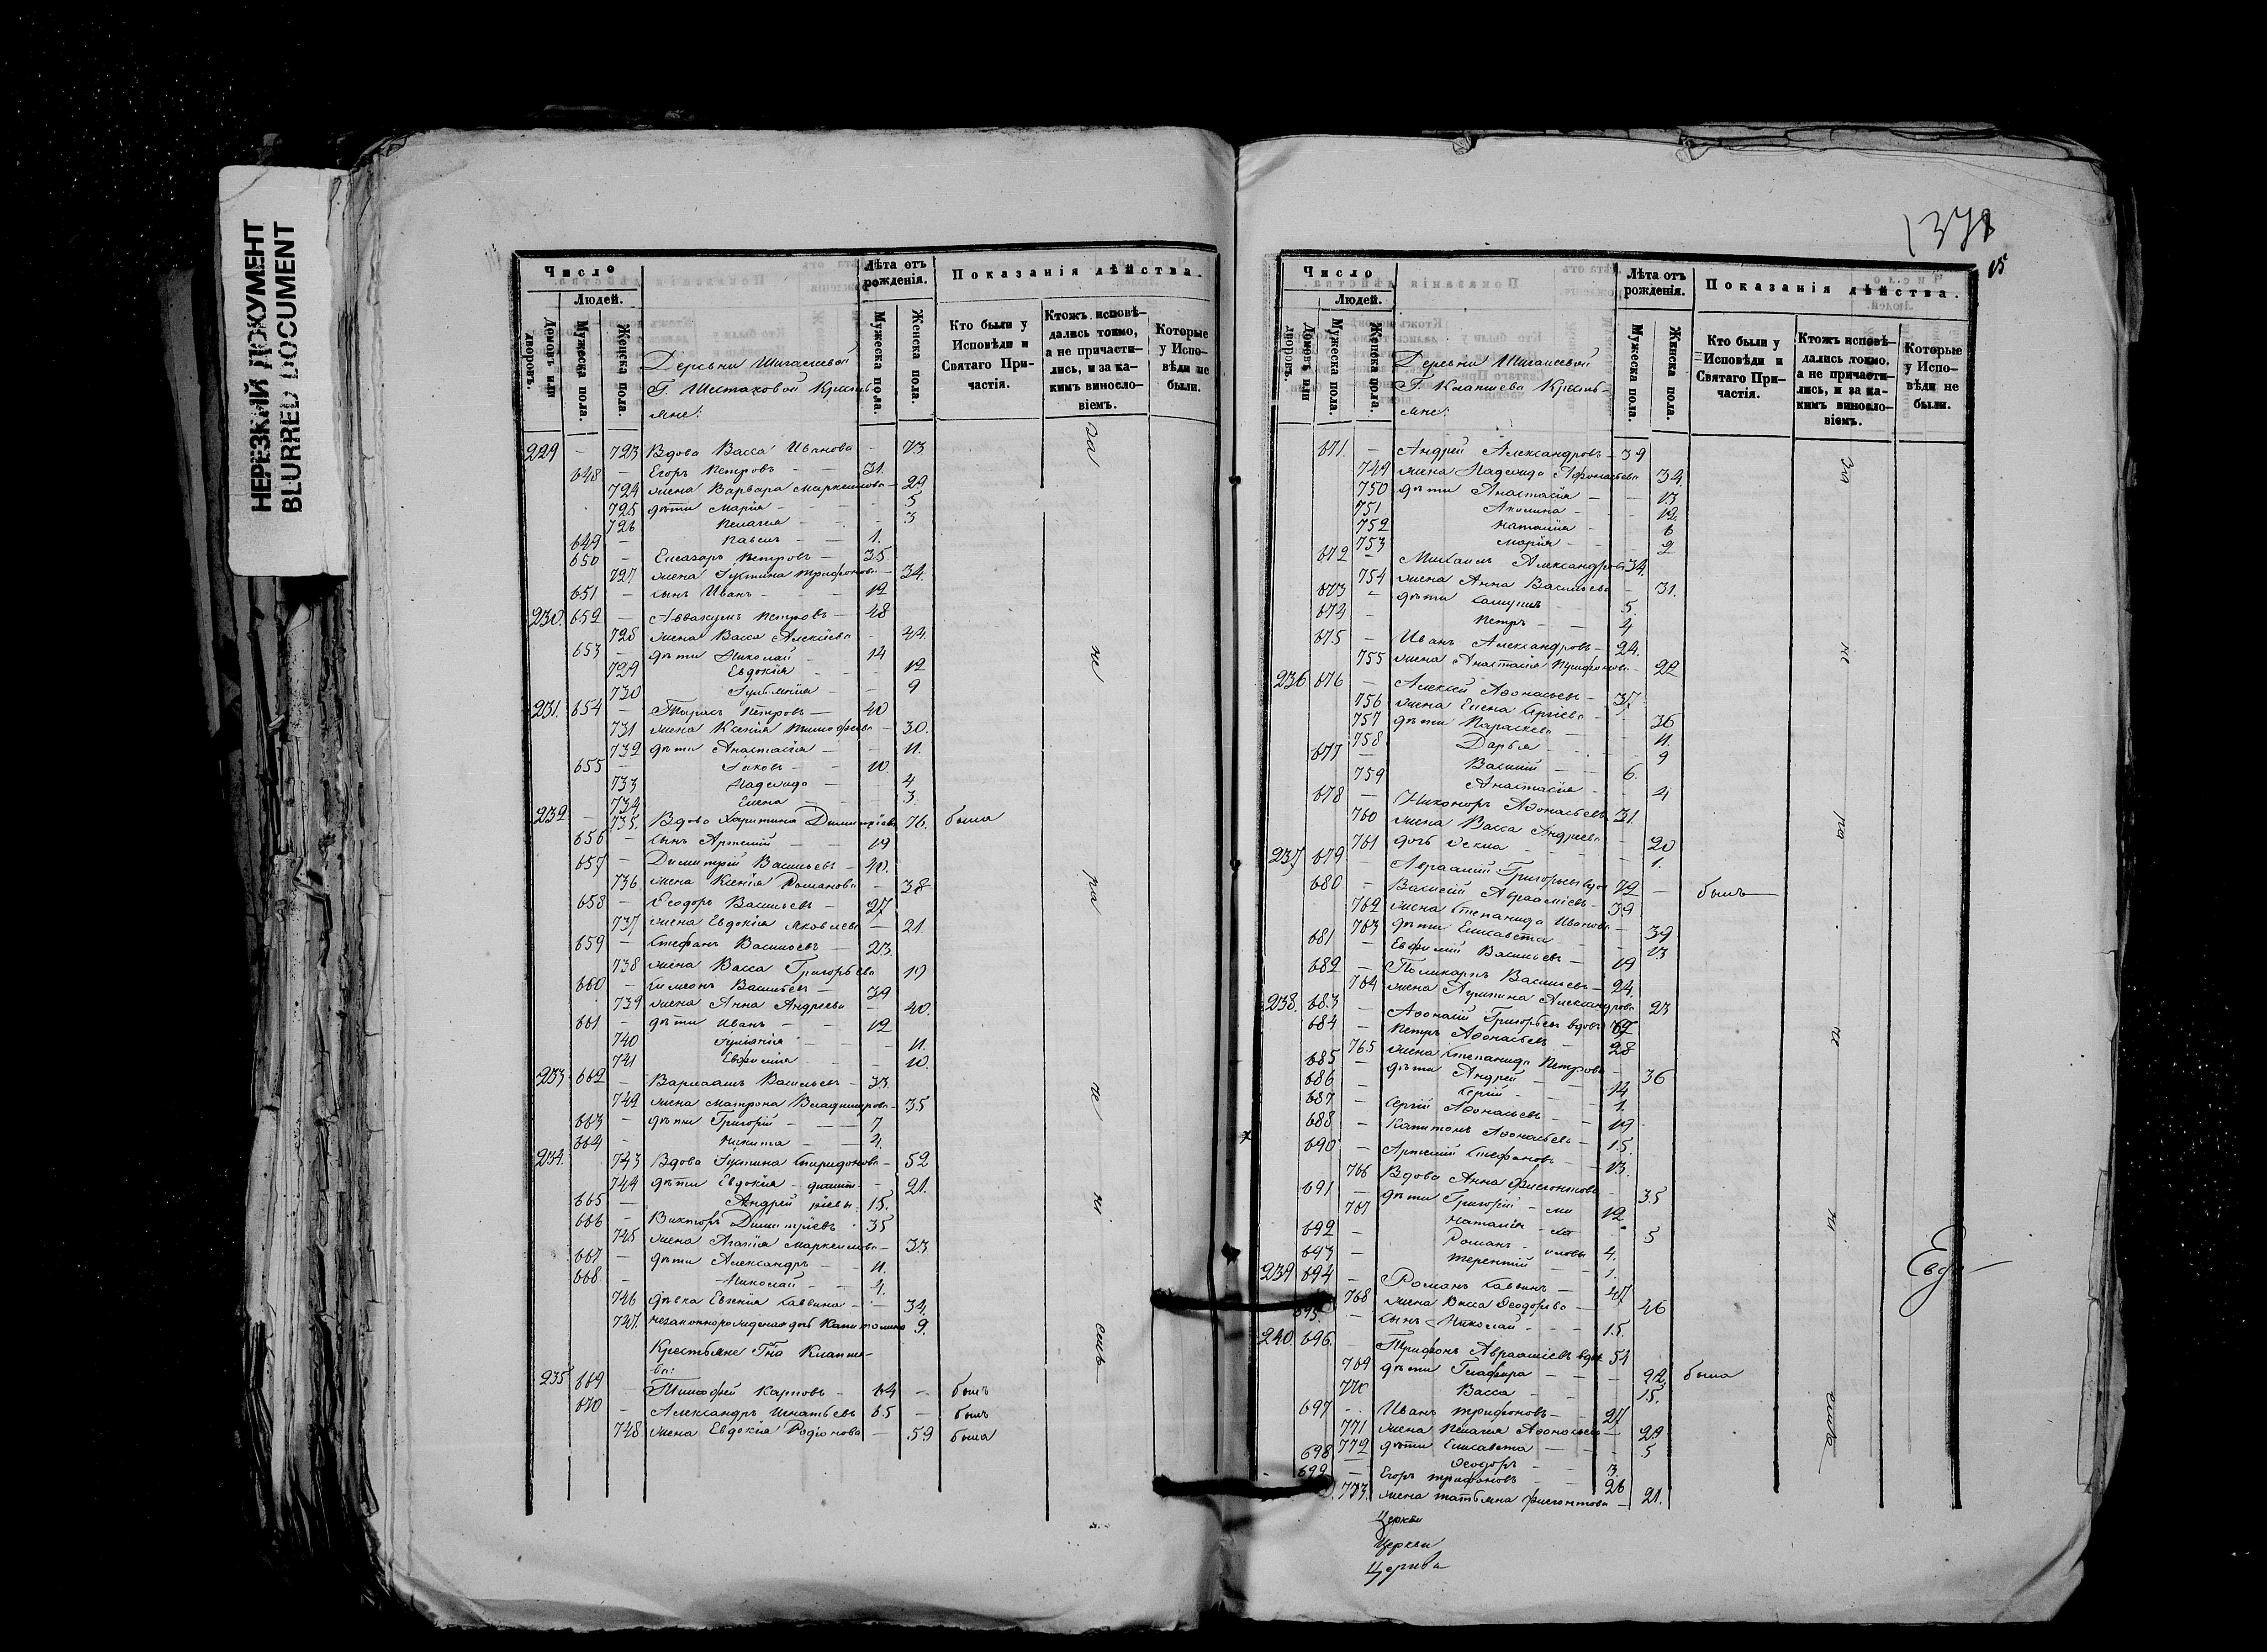 НЕРЕЗКИЙ ДОКУМЕНТ
BLURRED DOCUMENT
Число
Людей.
Домовъ или дворовъ.
Мужеска пола.
Женска пола.
Лѣта отъ рожденія.
Мужеска пола.
Женска пола.
Показанія дѣйства.
Кто были у Исповѣди и Святаго Причастія.
Ктожъ исповѣдались токмо, а не причастились, и за какимъ винословіемъ.
Которые у Исповѣди не были.
Деревни
Г. Шестаковой
229 — 723 Вдова Васса Иванова — 73
648 — Егоръ Петровъ — 31.
724 жена Варвара — 29
725 дѣти Марія — 5
726 Пелагія — 3
649 — Павелъ — 1.
650 — Елеазаръ Петровъ — 35
727 жена Трифонова — 34.
651 — сынъ Иванъ — 12
230. 652 — Аввакумъ Петровъ — 48
728 жена Васса Алексіева — 44.
653 — дѣти Николай — 14
729 Евдокія — 12
730 — 9
231. 654 — Тарасъ Петровъ — 40
731 жена Ксенія Тимофеева — 30.
732 дѣти Анастасія — 11.
655 — Іаковъ — 10.
733 Надежда — 4
734 Елена — 3.
232 — 735. Вдова Харитина Димитріева 76. была
656 — сынъ Артемій — 19
657 — Димитрій Васильевъ — 40.
736 жена Ксенія Романова — 38
658 — Ѳеодоръ Васильевъ — 27
737 жена Евдокія Яковлева — 21
659 — Стефанъ Васильевъ — 23.
738 жена Васса Григорьева 19
660 — Симеонъ Васильевъ — 39
739 жена Анна Андреева — 40.
661 — дѣти Иванъ — 12
740 — 11.
741 Евфимія — 10.
233 662 — Варлаамъ Васильевъ — 33.
742 жена Матрона Владимирова — 35
663 — дѣти Григорій — 7
664 — Никита — 4.
234. 743 Вдова Спиридонова — 52
744 дѣти Евдокія — 21.
665 — Андрей 15.
666 — Викторъ Димитріевъ 35
745 жена Агапія — 33
667 — дѣти Александръ — 11.
668 — Николай — 4.
746 дѣвка Евгенія Саввина — 34.
747. незаконнорожденая дочь Капитолина 9.
Крестьяне
235 669 — Тимофей Карповъ — 64 — былъ
670 — Александръ Игнатьевъ 65 — былъ
748. жена Евдокія Родіонова — 59 была
За не ра
1378
15
Число
Людей.
Домовъ или дворовъ.
Мужеска пола.
Женска пола.
Лѣта отъ рожденія.
Мужеска пола.
Женска пола.
Показанія дѣйства.
Кто были у Исповѣди и Святаго Причастія.
Ктожъ исповѣдались токмо, а не причастились, и за какимъ винословіемъ.
Которые у Исповѣди не были.
Деревни
671. — Андрей Александровъ — 39
749 жена Надежда Афонасьева 34.
750 дѣти Анастасія — 13
751 Акилина — 12.
752 Наталія — 6
753 Марія — 2
672 — Михаилъ Александровъ 34.
754 жена Анна Васильева — 31.
673 — дѣти 5.
674 — Петръ — 4
675 — Иванъ Александровъ — 24.
755 жена Анастасія Трифонова — 22
236 676 — Алексій Афонасьевъ — 37
756 жена Елена Сергіева — 36
757 дѣти Параскева — 11.
758 Дарья — 9
677 — Василій — 6.
759 Анастасія — 4
678 — Никоноръ Афонасьевъ 31.
760 жена Васса Андреева — 20
761 дочь — 1.
237 679 — Авраамій Григорьевъ вдовъ 72 — былъ
680 — Василій Авраамісвъ — 39
762 жена Степанида Иванова — 39
763 дѣти Елисавета — 13
681 — Евфимій Васильевъ — 19
682 — Поликарпъ Васильевъ — 24.
764 жена Александрова 23
238. 683 — Афонасій Григорьевъ вдовъ 67
684 — Петръ Афонасьевъ — 28
765 жена Степанида Петрова — 36
685 — дѣти Андрей — 14
686 — Сергій — 1.
687 — Сергій Афонасьевъ — 19
688 — Капитонъ Афонасьевъ — 15.
690 — Артемій Стефановъ — 13.
766 Вдова Анна Филонтова 35
691 — дѣти Григорій — 12
767 Наталія — 5
692 — Романъ — 4.
693 — Терентій — 1.
239 694 — Романъ Саввинъ — 47
768 жена Васса Ѳеодорова — 46
695. — сынъ Николай — 15.
240. 696. — Трифонъ Авраамісвъ вдовъ 54
769 дѣти Глафира — 22. была
770 Васса — 15.
697 — Иванъ Трифоновъ — 27
771 жена Пелагія Афонасьева — 29
772 дѣти Елисавета — 5
698 — Ѳеодоръ — 3.
699 — Егоръ Трифоновъ — 26
773. жена Татьяна Филонтова — 21.
за не ра
Евд
Церкви
Церкви
Церкви